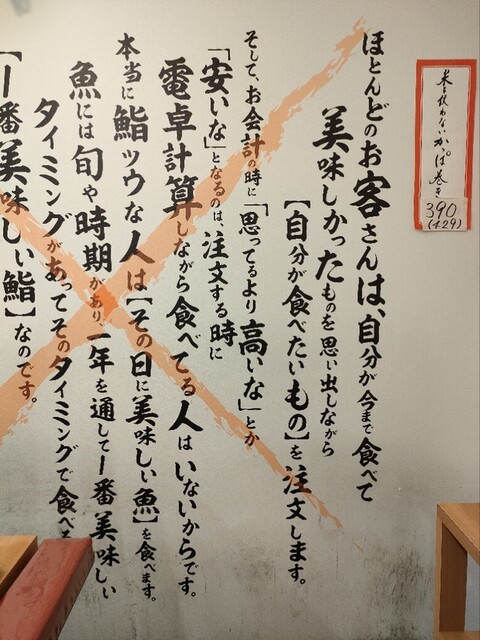 米を使わないかっぱ巻き
390
(429)
ほとんどのお客さんは、自分が今まで食べて
美味しかったものを思い出しながら
【自分が食べたいもの】を注文します。
そして、お会計の時に「思ってるより高いな」とか
「安いな」となるのは、注文する時に
電卓計算しながら食べてる人はいないからです。
本当に鮨ツウな人は【その日に美味しい魚】を食べます。
魚には旬や時期があり、一年を通して一番美味しい
タイミングがあってそのタイミングで食べる
【一番美味しい鮨】なのです。